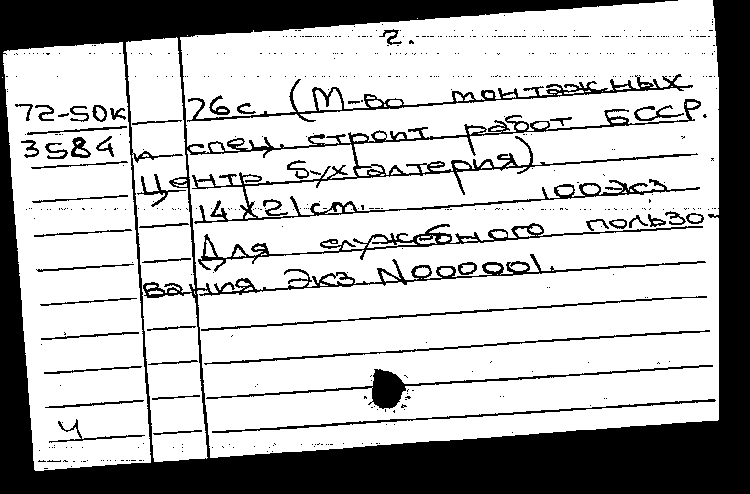 2.
72-50к 76с. (М-во монтажных
3584 и спец. строит. работ БССР.
Центр. бухгалтерия).
14×21 cm. 100экз
Для служебного пользо-
вания. Экз. N000001.
Ч